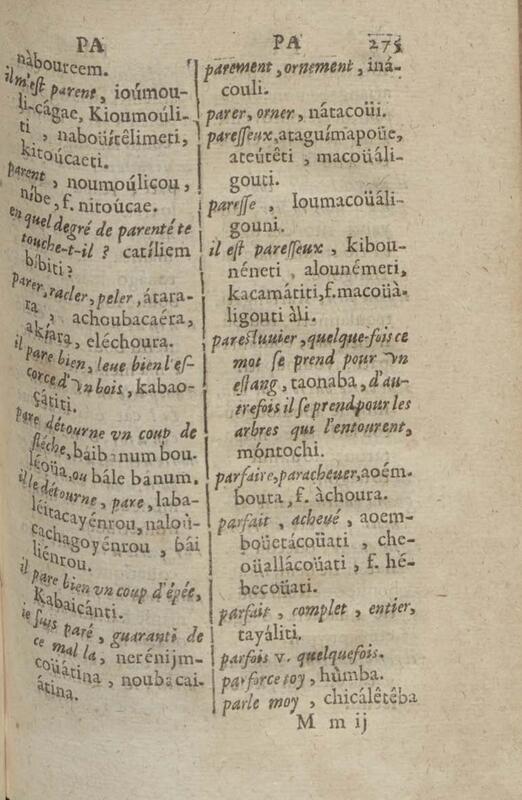 PA
PA 275
nàboureem.
il m'est parent, ioúmou-
li-cágae, Kioumoúli-
ti, naboüítêlimeti,
kitoúcaeti.
parent, noumoúlicou,
níbe, f. nitoúcae.
en quel degré de parenté te
touche-t-il? catíliem
bíbiti?
parer, racler, peler, átara-
ra, achoubacaéra,
akíara, eléchoura.
il pare bien, leue bien l'es-
corce d'vn bois, kabao-
çátiti.
pare détourne vn coup de
fléche, bàibanum bou-
léoüa, ou bále bánum.
il le détourne, pare, laba-
léitacayénrou, naloù-
cachagoyénrou, bái
liénrou.
il pare bien vn coup d'épée,
Kabaicánti.
ie suis paré, guaranti de
ce mal la, nerénijm-
coüátina, noubácai-
átina.
parement, ornement, iná-
couli.
parer, orner, nátacoüi.
paresseux, ataguímapoüe,
ateútêti, macoüáli-
gouti.
paresse, Ioumacoüáli-
gouni.
il est paresseux, kibou-
néneti alounémeti,
kacamátiti, f. macoüà-
ligouti àli.
parestuuier, quelque-fois ce
mot se prend pour vn
estang, taonaba, d'au-
trefois il se prend pour les
arbres qui l'entourent,
móntochi.
parfaire, paracheuer, aoém-
bouta, f. àchoura.
parfait, acheué, aoem-
boüetácoüati, che-
oüallácoüati, f. hé-
becoüati.
parfait, complet, entier,
tayáliti.
parfois v. quelquefois.
parforce toy, húmba.
parle moy, chicálêtêba
M m ij